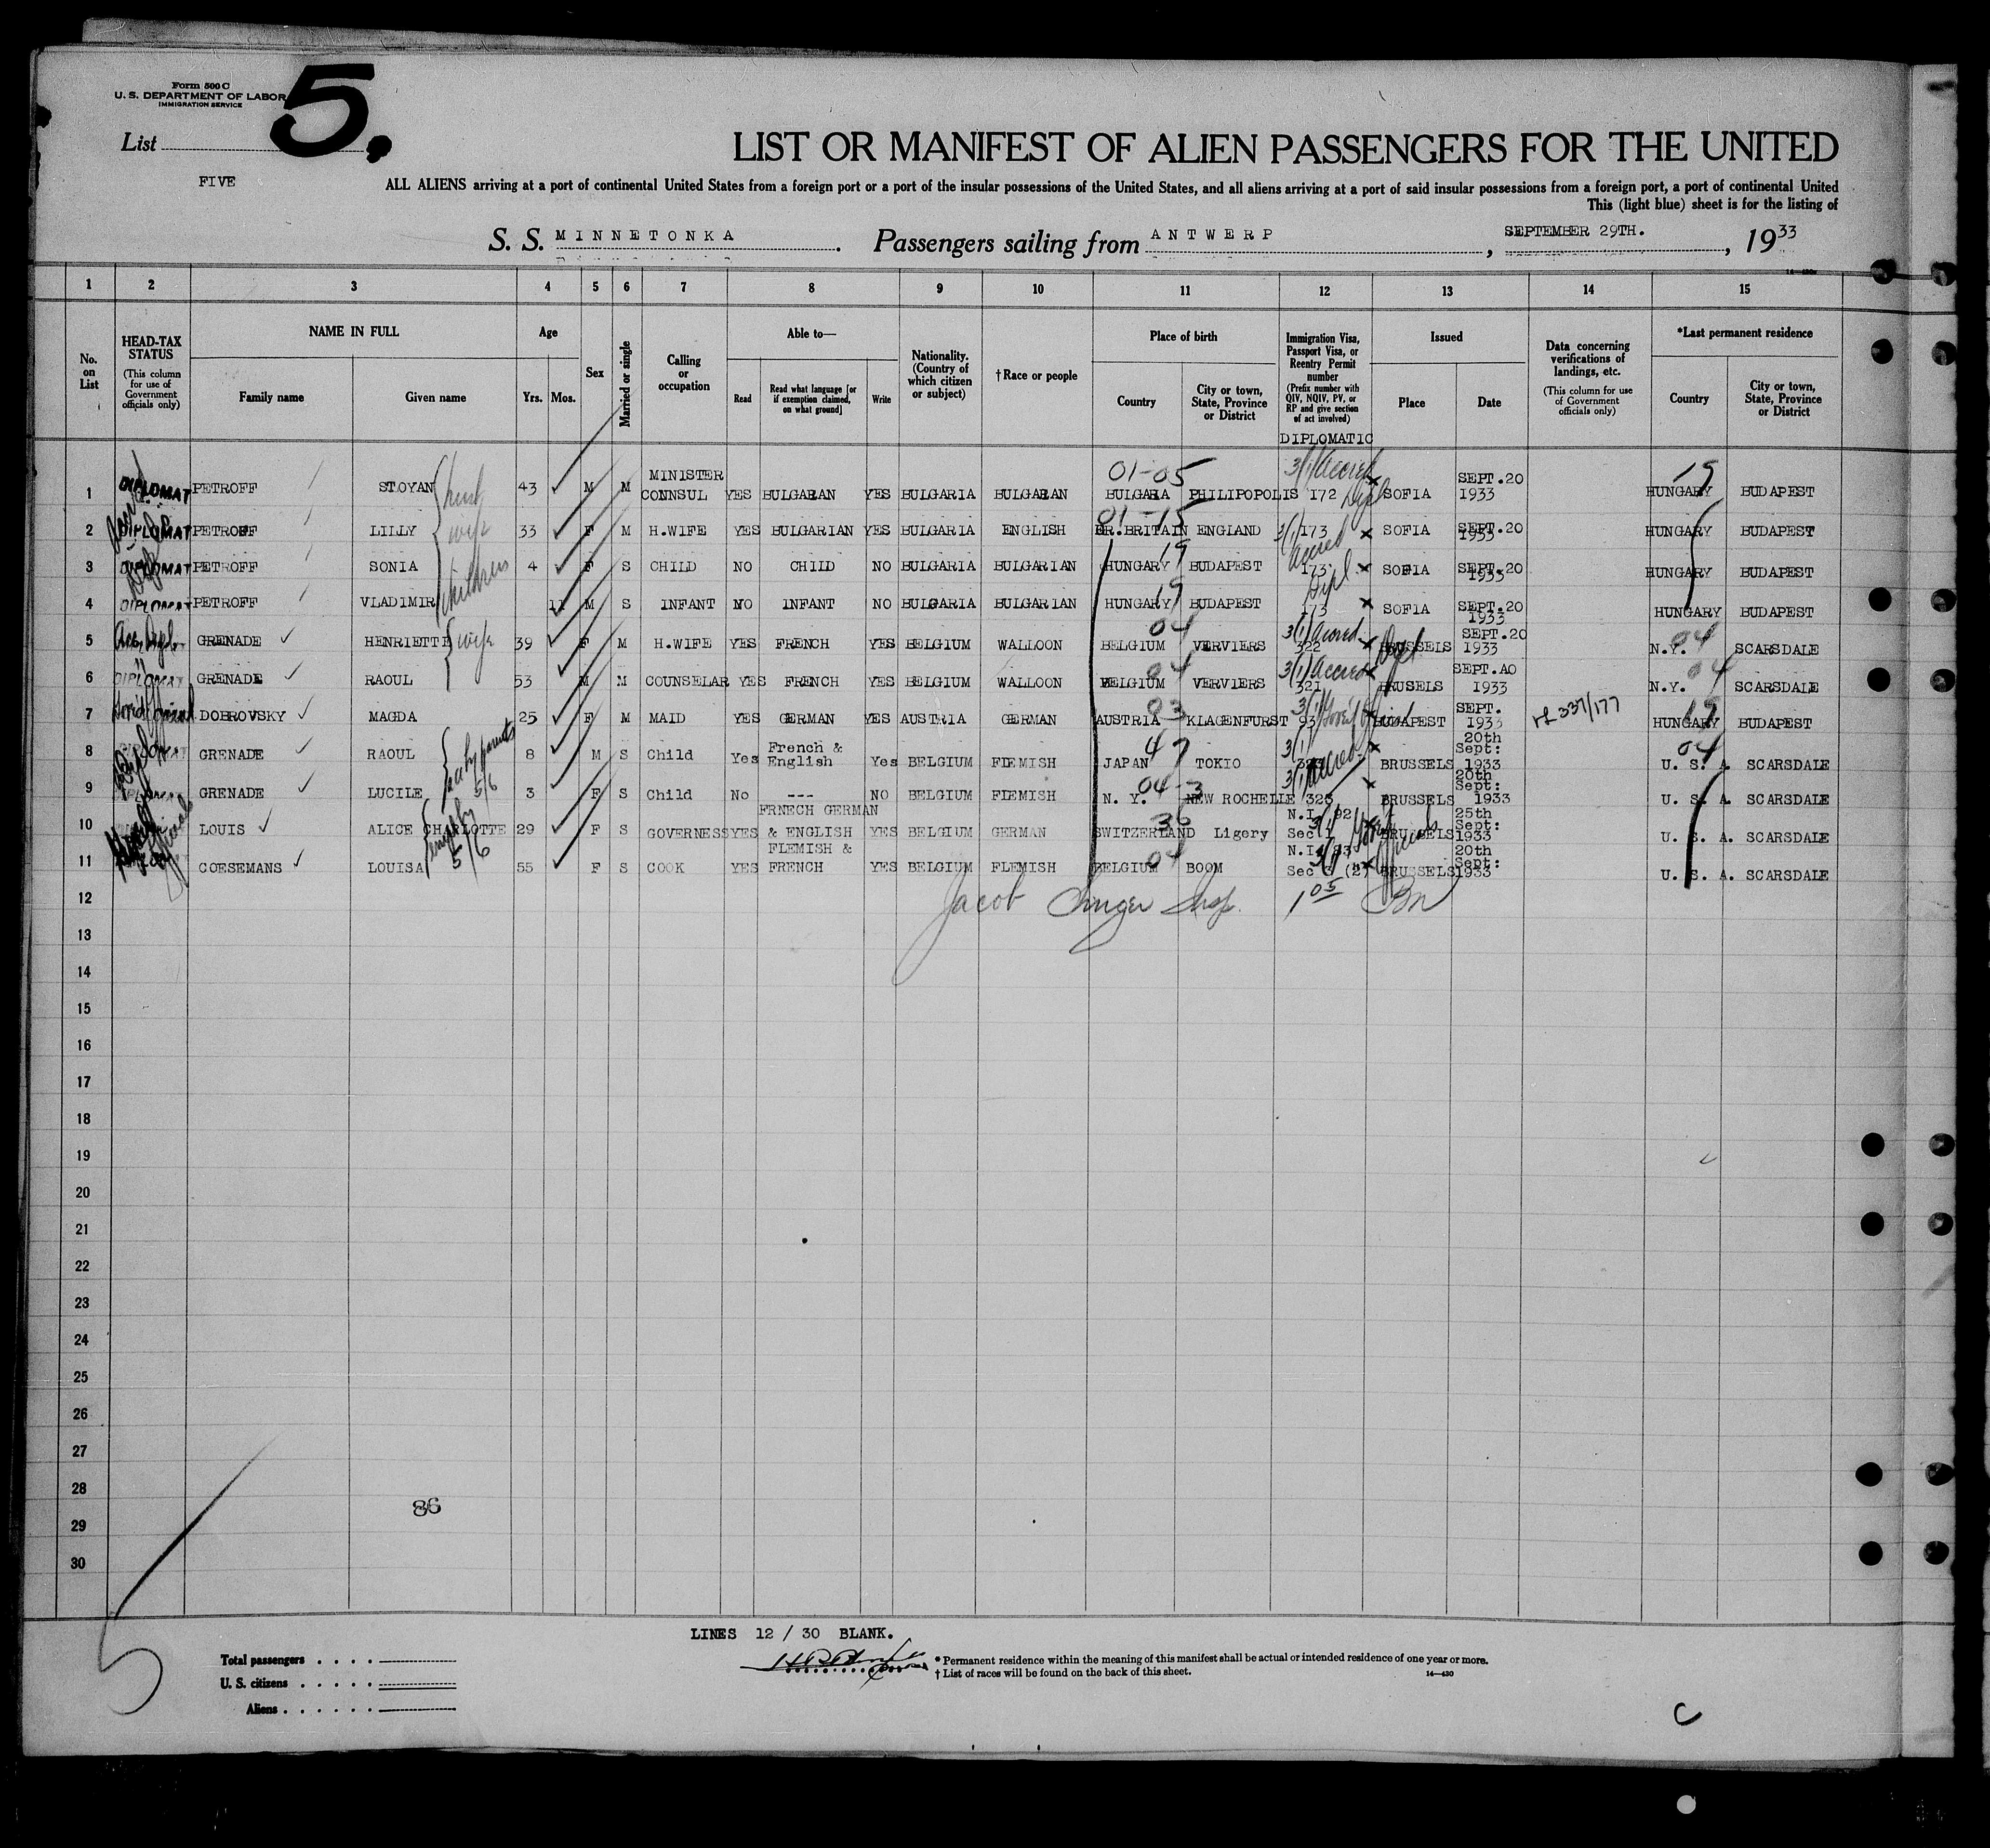 Form 500 C
U. S. DEPARTMENT OF LABOR
IMMIGRATION SERVICE
List 5.
FIVE
LIST OR MANIFEST OF ALIEN PASSENGERS FOR THE UNITED
ALL ALIENS arriving at a port of continental United States from a foreign port or a port of the insular possessions of the United States, and all aliens arriving at a port of said insular possessions from a foreign port, a port of continental United
This (light blue) sheet is for the listing of
S. S. MINNETONKA. Passengers sailing from ANTWERP, SEPTEMBER 29TH., 1933
1 2 3 4 5 6 7 8 9 10 11 12 13 14 15
No. on List
HEAD-TAX STATUS (This column for use of Government officials only)
NAME IN FULL Family name Given name
Age Yrs. Mos.
Sex
Married or single
Calling or occupation
Able to— Read Read what language [or if exemption claimed, on what ground] Write
Nationality. (Country of which citizen or subject)
†Race or people
Place of birth Country City or town, State, Province or District
Immigration Visa, Passport Visa, or Reentry Permit number (Prefix number with QIV, NQIV, PV, or RP and give section of act involved)
DIPLOMATIC
Issued Place Date
Data concerning verifications of landings, etc. (This column for use of Government officials only)
*Last permanent residence Country City or town, State, Province or District
1 DIPLOMAT PETROFF STOYAN 43 M M MINISTER CONNSUL YES BULGARAN YES BULGARIA BULGARAN 01-05 BULGARIA PHILIPOPOLIS 172 SOFIA SEPT.20 1933 19 HUNGARY BUDAPEST
2 DIPLOMAT PETROFF LILLY wife 33 F M H.WIFE YES BULGARIAN YES BULGARIA ENGLISH 01-15 GR.BRITAIN ENGLAND 173 SOFIA SEPT.20 1933 HUNGARY BUDAPEST
3 DIPLOMAT PETROFF SONIA children 4 F S CHILD NO CHILD NO BULGARIA BULGARIAN 19 HUNGARY BUDAPEST 173 SOFIA SEPT.20 1933 HUNGARY BUDAPEST
4 DIPLOMAT PETROFF VLADIMIR 11 M S INFANT NO INFANT NO BULGARIA BULGARIAN 19 HUNGARY BUDAPEST 173 SOFIA SEPT.20 1933 HUNGARY BUDAPEST
5 GRENADE HENRIETTE wife 39 F M H.WIFE YES FRENCH YES BELGIUM WALLOON 04 BELGIUM VERVIERS 3(1) Accred 322 BRUSSELS SEPT.20 1933 04 N.Y. SCARSDALE
6 DIPLOMAT GRENADE RAOUL 53 M M COUNSELAR YES FRENCH YES BELGIUM WALLOON 04 BELGIUM VERVIERS 3(1) Accred 321 BRUSELS SEPT.AO 1933 04 N.Y. SCARSDALE
7 DOBROVSKY MAGDA 25 F M MAID YES GERMAN YES AUSTRIA GERMAN 03 AUSTRIA KLAGENFURST 93 BUDAPEST SEPT. 1933 337/177 19 HUNGARY BUDAPEST
8 GRENADE RAOUL 8 M S Child Yes French & English Yes BELGIUM FLEMISH 47 JAPAN TOKIO BRUSSELS 20th Sept: 1933 04 U. S. A. SCARSDALE
9 GRENADE LUCILE 3 F S Child No --- NO BELGIUM FLEMISH 04-3 N. Y. NEW ROCHELLE 323 BRUSSELS 20th Sept: 1933 U. S. A. SCARSDALE
10 LOUIS ALICE CHARLOTTE 29 F S GOVERNESS YES FRNECH GERMAN & ENGLISH YES BELGIUM GERMAN 36 SWITZERLAND Ligery BRUSSELS 25th Sept: 1933 U. S. A. SCARSDALE
11 COESEMANS LOUISA 55 F S COOK YES FLEMISH & FRENCH YES BELGIUM FLEMISH 04 BELGIUM BOOM BRUSSELS 20th Sept: 1933 U. S. A. SCARSDALE
12 Jacob Insp. 1 05
13
14
15
16
17
18
19
20
21
22
23
24
25
26
27
28
86
29
30
LINES 12 / 30 BLANK.
Total passengers
U. S. citizens
Aliens
* Permanent residence within the meaning of this manifest shall be actual or intended residence of one year or more.
† List of races will be found on the back of this sheet. 14—430
C